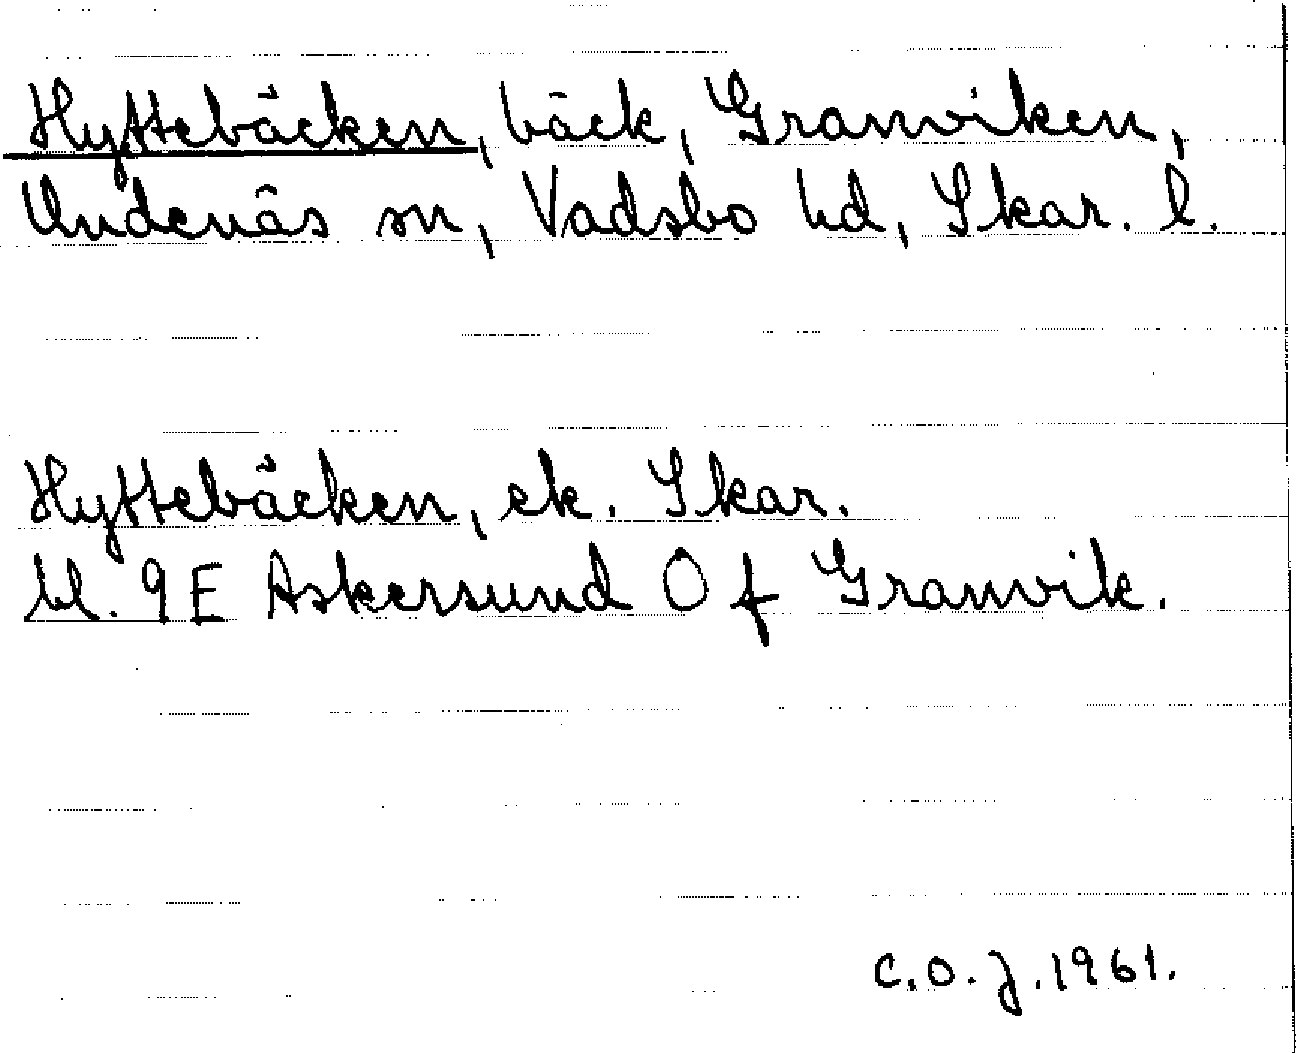 Hyttebäcken, bäck, Granviken,
Undenäs sn, Vadsbo hd, Skar. l.
Hyttebäcken, ek. Skar.
bl. 9E Askersund Of Granvik.
C.O.J. 1961.